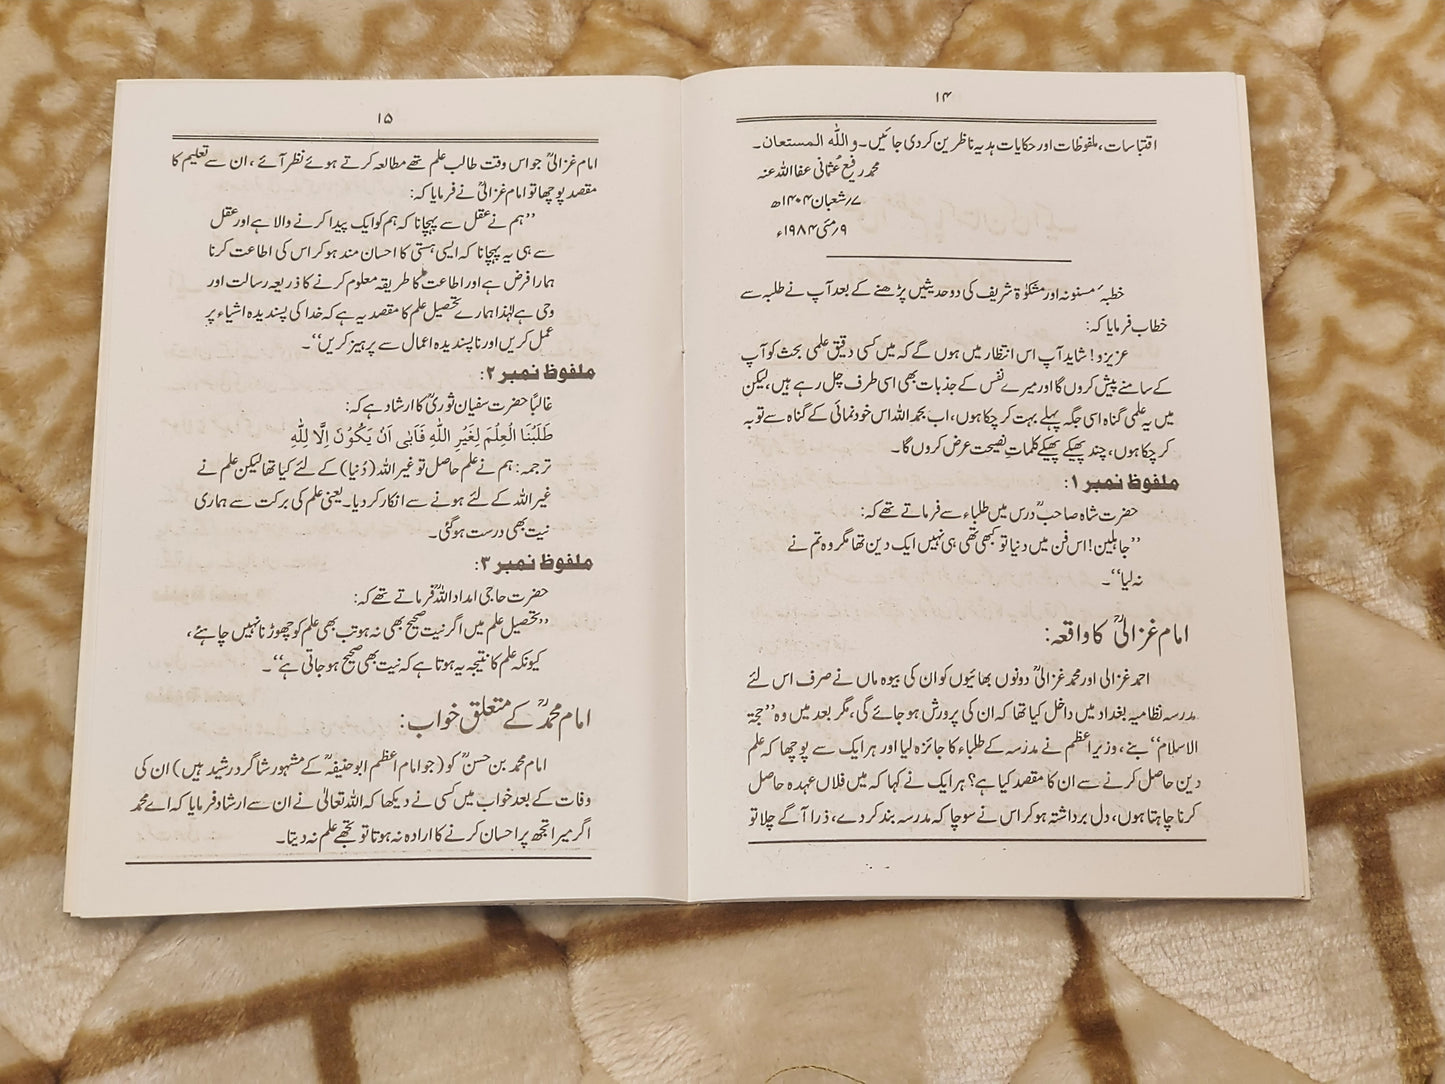 ۱۴
اقتباسات، ملفوظات اور حکایات ہدیہ ناظرین کردی جائیں۔ واللہ المستعان۔
محمد رفیع عثمانی عفا اللہ عنہ
۷؍شعبان ۱۴۰۴ھ
۹؍مئی ۱۹۸۴ء
خطبہ ٔ مسنونہ اور مشکوٰۃ شریف کی دو حدیثیں پڑھنے کے بعد آپ نے طلبہ سے
خطاب فرمایا کہ:
عزیزو! شاید آپ اس انتظار میں ہوں گے کہ میں کسی دقیق علمی بحث کو آپ
کے سامنے پیش کروں گا اور میرے نفس کے جذبات بھی اسی طرف چل رہے ہیں، لیکن
میں یہ علمی گناہ اسی جگہ پہلے بہت کر چکا ہوں، اب بحمد اللہ اس خود نمائی کے گناہ سے توبہ
کر چکا ہوں، چند پھیکے پھیکے کلماتِ نصیحت عرض کروں گا۔
ملفوظ نمبر ۱:
حضرت شاہ صاحبؒ درس میں طلباء سے فرماتے تھے کہ:
’’جاہلین! اس فن میں دنیا تو کبھی تھی ہی نہیں ایک دین تھا مگر وہ تم نے
نہ لیا‘‘۔
امام غزالیؒ کا واقعہ:
احمد غزالی اور محمد غزالیؒ دونوں بھائیوں کو ان کی بیوہ ماں نے صرف اس لئے
مدرسہ نظامیہ بغداد میں داخل کیا تھا کہ ان کی پرورش ہو جائے گی، مگر بعد میں وہ ’’حجۃ
الاسلام‘‘ بنے، وزیر اعظم نے مدرسہ کے طلباء کا جائزہ لیا اور ہر ایک سے پوچھا کہ علم
دین حاصل کرنے سے ان کا مقصد کیا ہے؟ ہر ایک نے کہا کہ میں فلاں عہدہ حاصل
کرنا چاہتا ہوں، دل برداشتہ ہو کر اس نے سوچا کہ مدرسہ بند کر دے، ذرا آگے چلا تو
۱۵
امام غزالیؒ جو اس وقت طالب علم تھے مطالعہ کرتے ہوئے نظر آئے، ان سے تعلیم کا
مقصد پوچھا تو امام غزالیؒ نے فرمایا کہ:
’’ہم نے عقل سے پہچانا کہ ہم کو ایک پیدا کرنے والا ہے اور عقل
سے ہی یہ پہچانا کہ ایسی ہستی کا احسان مند ہو کر اس کی اطاعت کرنا
ہمارا فرض ہے اور اطاعت کا طریقہ معلوم کرنے کا ذریعہ رسالت اور
وحی ہے لہٰذا ہمارے تحصیل علم کا مقصد یہ ہے کہ خدا کی پسندیدہ اشیاء پر
عمل کریں اور ناپسندیدہ اعمال سے پرہیز کریں‘‘۔
ملفوظ نمبر ۲:
غالبًا حضرت سفیان ثوریؒ کا ارشاد ہے کہ:
طَلَبْنَا الْعِلْمَ لِغَيْرِ اللّٰهِ فَاَبٰى اَنْ يَكُوْنَ اِلَّا لِلّٰهِ
ترجمہ: ہم نے علم حاصل تو غیر اللہ (دُنیا) کے لئے کیا تھا لیکن علم نے
غیر اللہ کے لئے ہونے سے انکار کر دیا۔ یعنی علم کی برکت سے ہماری
نیت بھی درست ہوگئی۔
ملفوظ نمبر ۳:
حضرت حاجی امداد اللہؒ فرماتے تھے کہ:
’’تحصیل علم میں اگر نیت صحیح بھی نہ ہو تب بھی علم کو چھوڑنا نہیں چاہئے،
کیونکہ علم کا نتیجہ یہ ہوتا ہے کہ نیت بھی صحیح ہو جاتی ہے‘‘۔
امام محمدؒ کے متعلق خواب:
امام محمد بن حسنؒ کو (جو امام اعظم ابوحنیفہؒ کے مشہور شاگرد رشید ہیں) ان کی
وفات کے بعد خواب میں کسی نے دیکھا کہ اللہ تعالیٰ نے ان سے ارشاد فرمایا کہ اے محمد
اگر میرا تجھ پر احسان کرنے کا ارادہ نہ ہوتا تو تجھے علم نہ دیتا۔